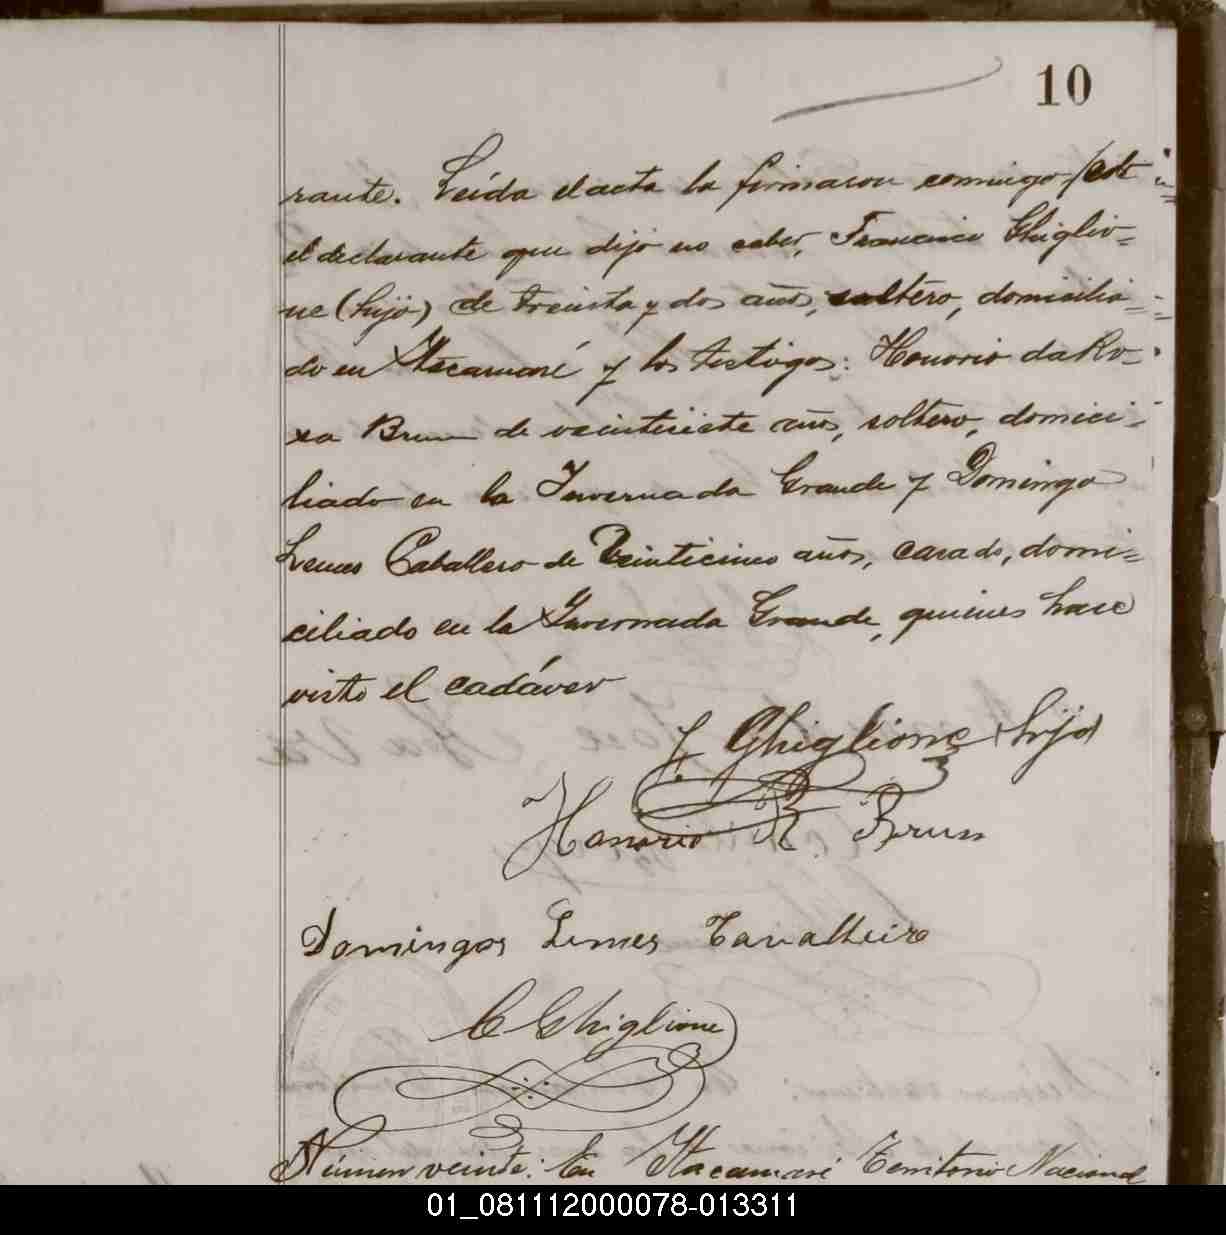 10
rante. Leída el acta la firmaron conmigo, por
el declarante que dijo no saber, Francisco Ghiglio=
ne (hijo) de treinta y dos años, soltero, domicilia=
do en Itacamaré y los testigos: Honorio da Ro=
sa Brum de veintisiete años, soltero, domici=
liado en la Invernada Grande y Domingo
Lemes Caballero de Veinticinco años, casado, domi=
ciliado en la Invernada Grande, quienes hase
visto el cadáver
F Ghiglione hijo
Honorio R. Brum
Domingos Lemes Cavalheiro
C Ghiglione
Número veinte: En Itacamaré Territorio Nacional
01_081112000078-013311